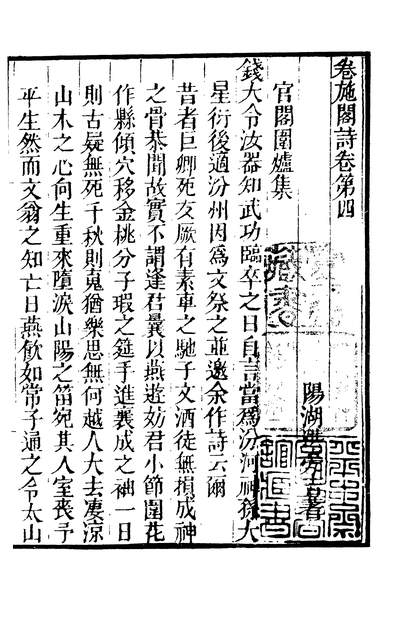 卷施閣詩卷第四
陽湖洪亮吉著
官閣圍爐集
錢大令汝器知武功臨卒之日自言當爲汾河神孫大
星衍後適汾州因爲文祭之並邀余作詩云爾
昔者巨卿死友厥有素車之馳子文酒徒無損成神
之骨恭聞故實不謂逢君曩以燕遊妨君小節圍花
作縣傾穴移金桃分子瑕之筵手進襄成之袖一日
則古疑無死千秋則鬼猶樂思無何越人大去凄涼
山木之心向生重來墮淚山陽之笛宛其人室喪予
平生然而文翁之知亡日燕飮如常子通之令太山